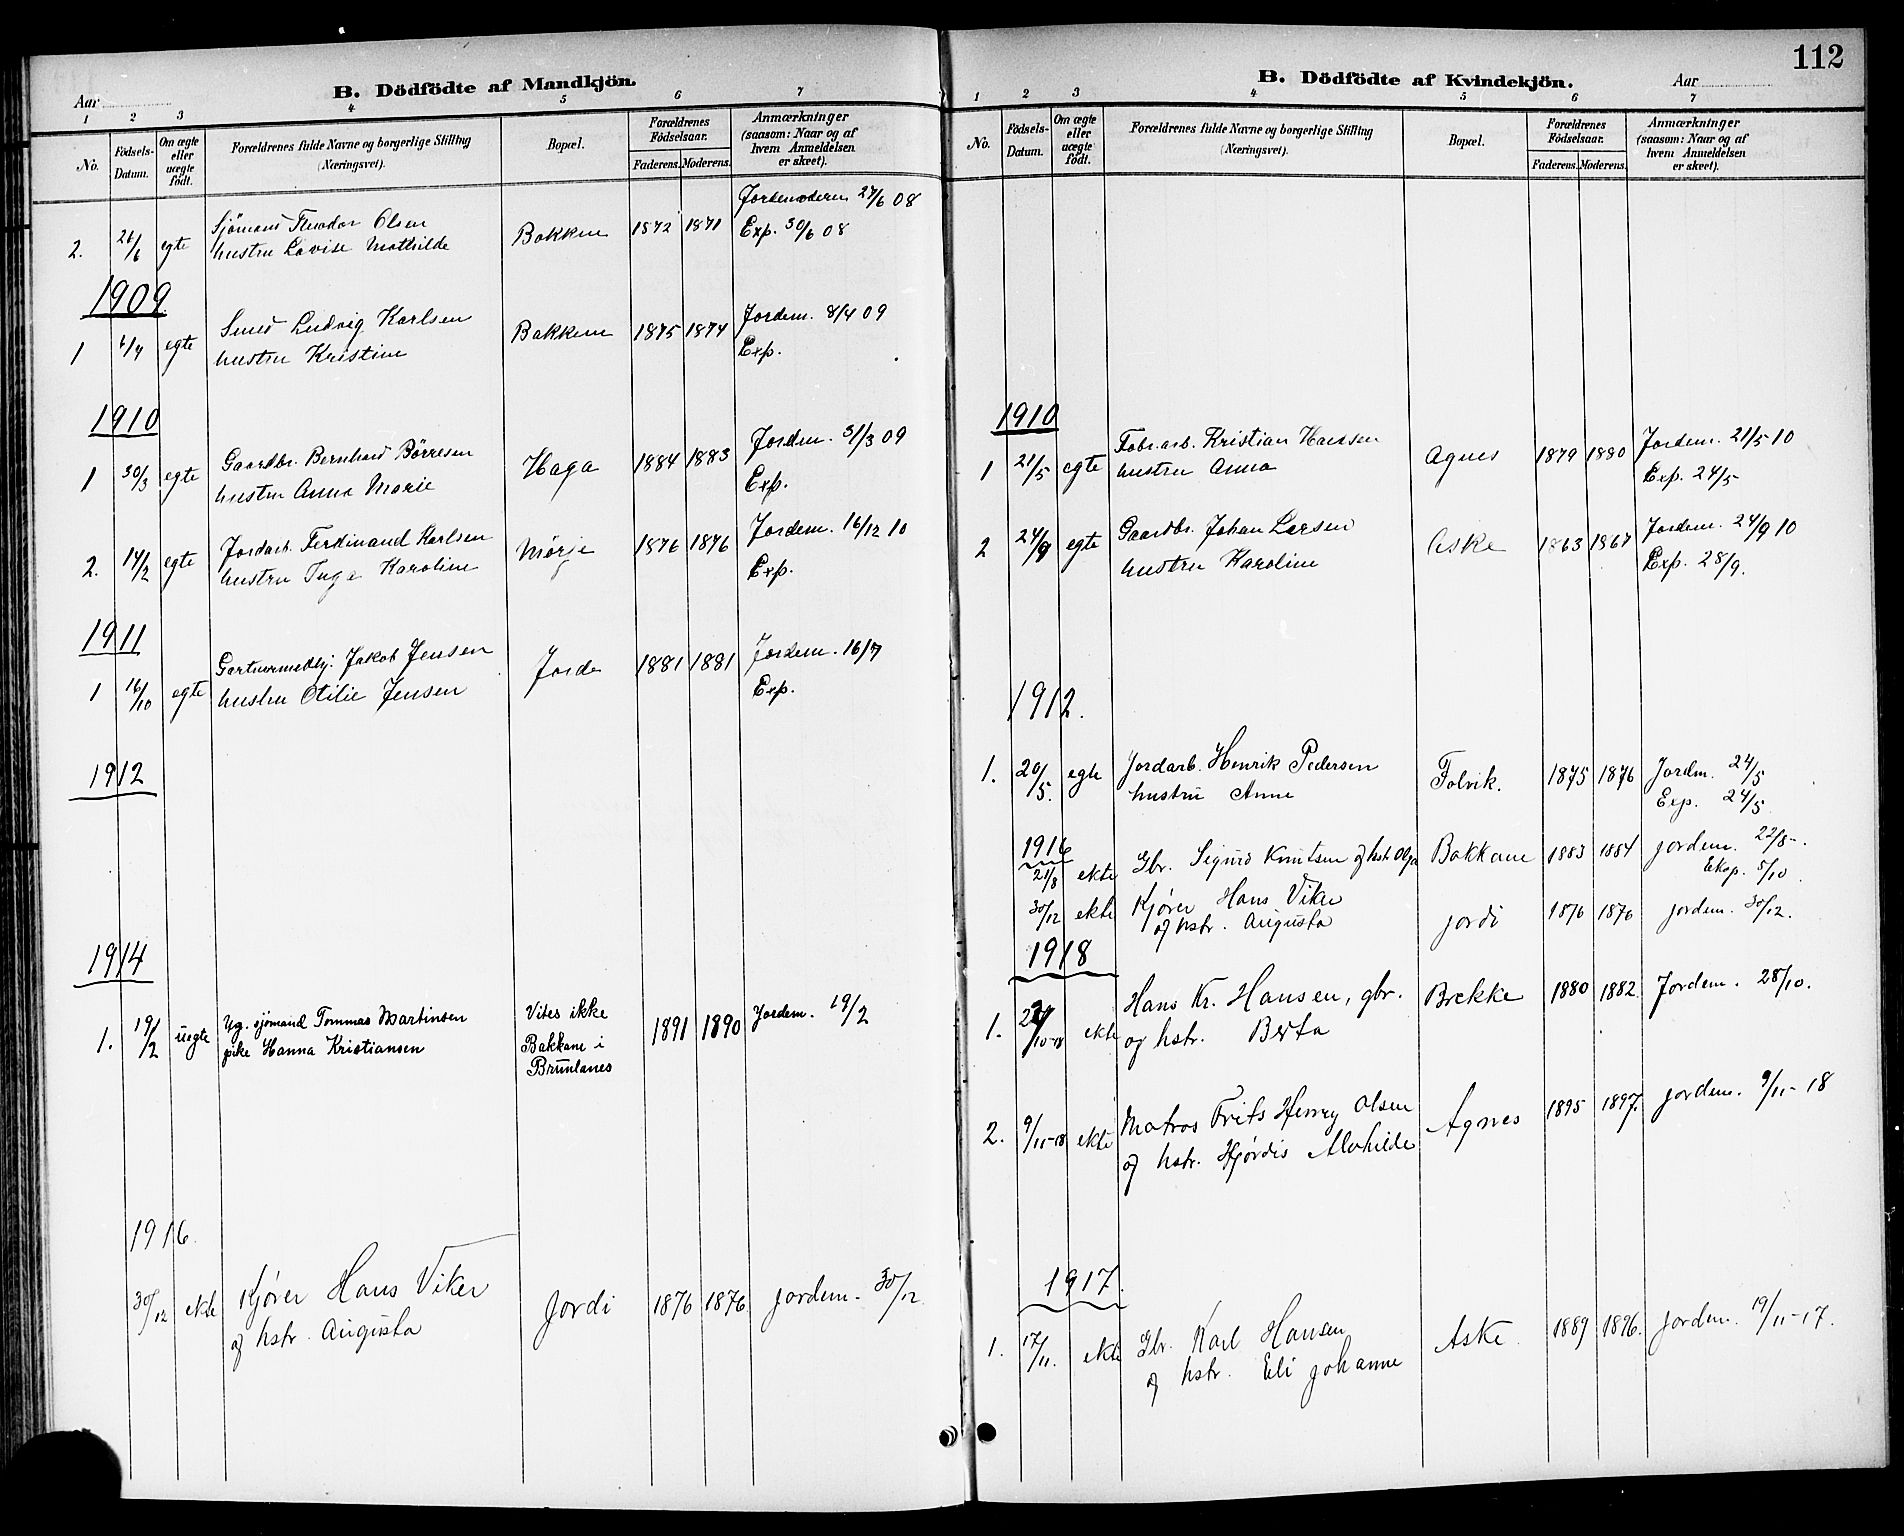 B. Dödfödte af Mandkjön.
Aar
1 2 3 4 5 6 7
No.
Födsels-Datum.
Om ægte eller uægte födt.
Forældrenes fulde Navne og borgerlige Stilling (Næringsvei).
Bopæl.
Forældrenes Födselsaar.
Faderens. Moderens.
Anmærkninger (saasom: Naar og af hvem Anmeldelsen er skeet).
2. 26/6 egte Sjömand Theodor Olsen Bakken 1872 1871 Jordemoderen 27/6 08
hustru Lovise Mathilde Exp. 30/6 08
1909
1 6/4 egte Smed Ludvig Karlsen Bakken 1875 1874 Jordem. 8/4 09
hustru Kristine Exp.
1910
1 30/3 egte Gaardbr. Bernhard Börresen Haga 1884 1883 Jordem. 31/3 09
hustru Anna Marie Exp.
2. 14/2 egte Jordarb. Ferdinand Karlsen Mörje 1876 1876 Jordem. 16/12 10
hustru Inga Karoline Exp.
1911
1 16/10 egte Gartnermedhj. Jakob Jensen Jorde 1881 1881 Jordem. 16/7
hustru Otilie Jensen Exp.
1912
1914
1. 19/2 uegte Ug. sjömand Tommas Martinsen Vites ikke 1891 1890 Jordem. 19/2
pike Hanna Kristiansen Bakkane i
Brunlanes
1916
30/12 ekte Kjörer Hans Viker Jordi 1876 1876 jordem. 30/12
og hstr. Augusta
112
B. Dödfödte af Kvindekjön.
Aar
1 2 3 4 5 6 7
No.
Födsels-Datum.
Om ægte eller uægte födt.
Forældrenes fulde Navne og borgerlige Stilling (Næringsvei).
Bopæl.
Forældrenes Födselsaar.
Faderens. Moderens.
Anmærkninger (saasom: Naar og af hvem Anmeldelsen er skeet).
1910
1 21/5 egte Fabr.arb. Kristian Hansen Agnes 1879 1880 Jordem. 21/5 10
hustru Anna Exp. 24/5
2 24/9 egte Gaardbr. Johan Larsen Aske 1863 1867 Jordem. 24/9 10
hustru Karoline Exp. 28/9.
1912.
1. 20/5. egte Jordarb. Henrik Pedersen Folvik. 1875 1876 Jordm. 24/5
hustru Anne Exp. 24/5
1916
21/8 ekte Gbr. Sigurd Knutsen og hst. Olga Bakkane 1883 1884 jordem. 22/8-.
Eksp. 5/10.
30/12 ekte Kjörer Hans Viker jordi 1876 1876 jordem. 30/12.
og hstr. Augusta
1918
1. /10-18 ekte Hans Kr. Hansen, gbr. Brekke 1880 1882. Jordem. 28/10.
og hstr. Berta
2. 9/11-18 ekte Matros Frits Henry Olsen Agnes 1895 1897. jordem. 9/11-18
og hstr. Hjördis Alvhilde
1917.
1. 17/11. ekte Gbr. Karl Hansen Aske. 1889 1896. jordem. 19/11-17.
og hstr. Eli Johanne